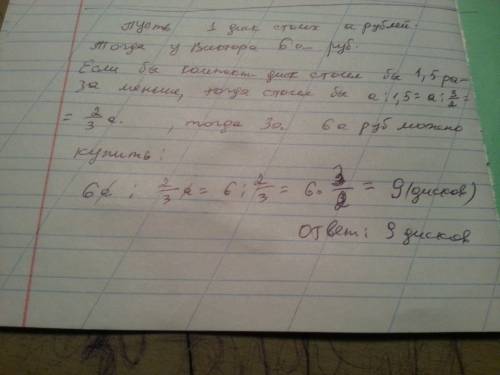 Пусть 1 диск стоит а рублей.
Тогда у Виктора 6а руб.
Если бы компакт диск стоил бы 1,5 ра-
за меньше, тогда стоил бы а : 1,5 = а : 3/2 =
= 2/3 а. , тогда за 6а руб можно
купить:
6а : 2/3 а = 6 : 2/3 = 6 · 3/2 = 9 (дисков)
Ответ: 9 дисков